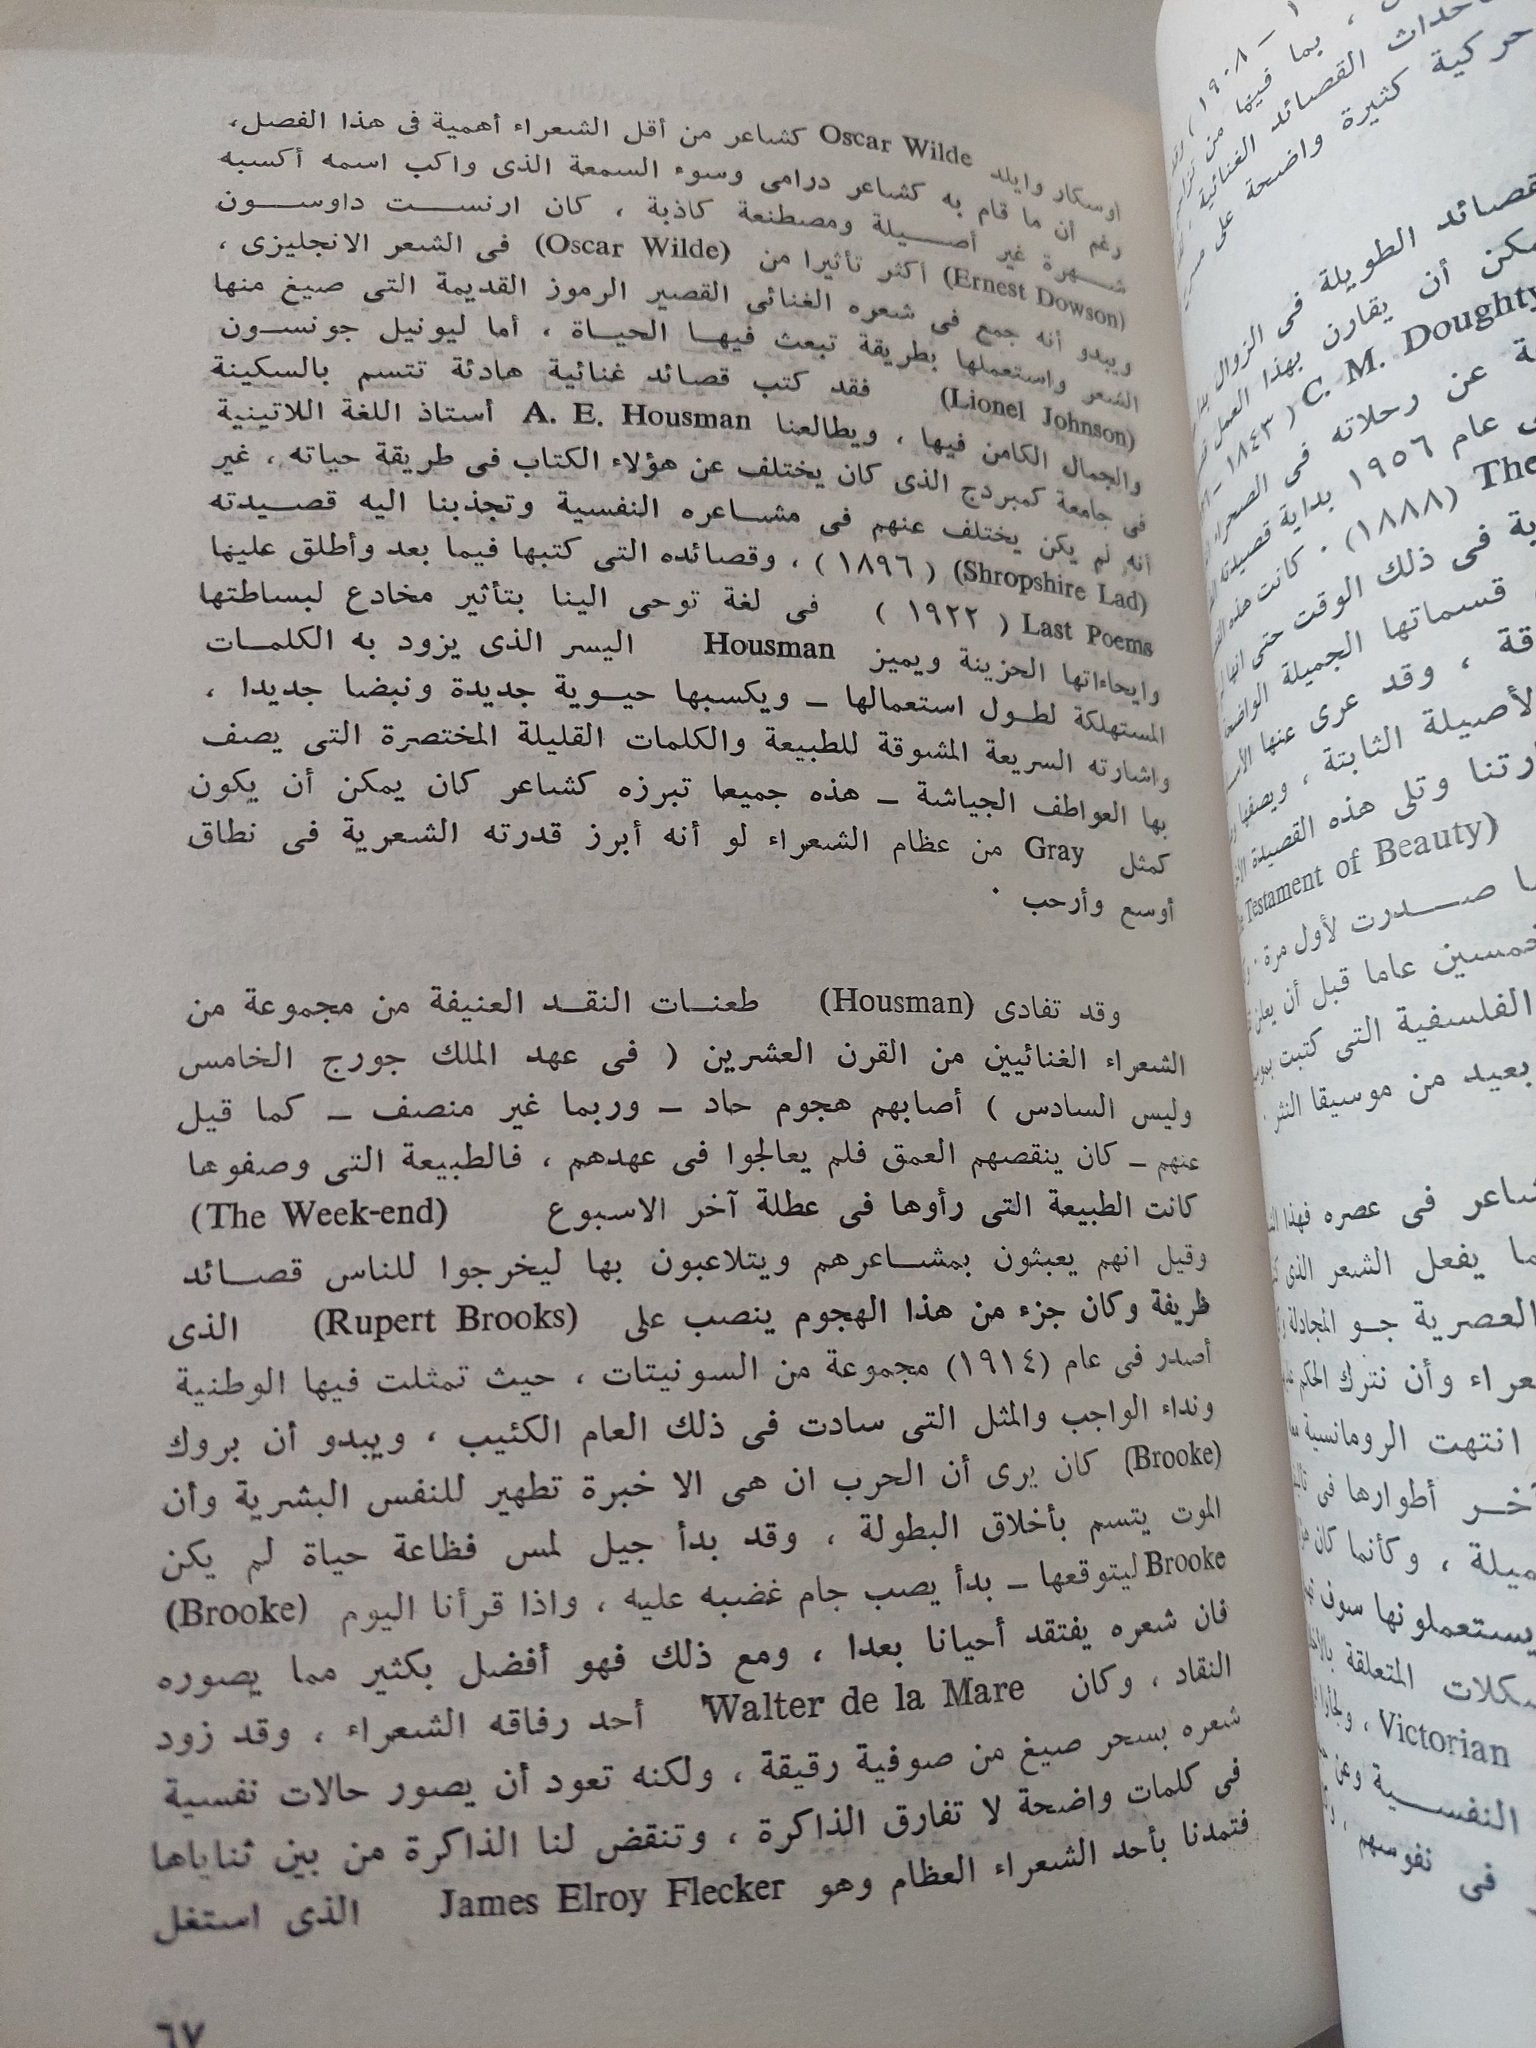 أوسكار وايلد Oscar Wilde كشاعر من أقل الشعراء أهمية فى هذا الفصل،
رغم أن ما قام به كشاعر درامى وسوء السمعة الذى واكب اسمه أكسبه
شهرة غير أصيلة ومصطنعة كاذبة ، كان ارنست داوسون
(Ernest Dowson) أكثر تأثيرا من (Oscar Wilde) فى الشعر الانجليزى ،
ويبدو أنه جمع فى شعره الغنائى القصير الرموز القديمة التى صيغ منها
الشعر واستعملها بطريقة تبعث فيها الحياة ، أما ليونيل جونسون
(Lionel Johnson) فقد كتب قصائد غنائية هادئة تتسم بالسكينة
والجمال الكامن فيها ، ويطالعنا A. E. Housman أستاذ اللغة اللاتينية
فى جامعة كمبردج الذى كان يختلف عن هؤلاء الكتاب فى طريقة حياته ، غير
أنه لم يكن يختلف عنهم فى مشاعره النفسية وتجذبنا اليه قصيدته
(Shropshire Lad) ( ١٨٩٦ ) ، وقصائده التى كتبها فيما بعد وأطلق عليها
Last Poems ( ١٩٢٢ ) فى لغة توحى الينا بتأثير مخادع لبساطتها
وايحاءاتها الحزينة ويميز Housman اليسر الذى يزود به الكلمات
المستهلكة لطول استعمالها – ويكسبها حيوية جديدة ونبضا جديدا ،
واشارته السريعة المشوقة للطبيعة والكلمات القليلة المختصرة التى يصف
بها العواطف الجياشة – هذه جميعا تبرزه كشاعر كان يمكن أن يكون
كمثل Gray من عظام الشعراء لو أنه أبرز قدرته الشعرية فى نطاق
أوسع وأرحب ٠
وقد تفادى (Housman) طعنات النقد العنيفة من مجموعة من
الشعراء الغنائيين من القرن العشرين ( فى عهد الملك جورج الخامس
وليس السادس ) أصابهم هجوم حاد – وربما غير منصف – كما قيل
عنهم – كان ينقصهم العمق فلم يعالجوا فى عهدهم ، فالطبيعة التى وصفوها
كانت الطبيعة التى رأوها فى عطلة آخر الاسبوع (The Week-end)
وقيل انهم يعبثون بمشاعرهم ويتلاعبون بها ليخرجوا للناس قصائد
ظريفة وكان جزء من هذا الهجوم ينصب على (Rupert Brooks) الذى
أصدر فى عام (١٩١٤) مجموعة من السونيتات ، حيث تمثلت فيها الوطنية
ونداء الواجب والمثل التى سادت فى ذلك العام الكئيب ، ويبدو أن بروك
(Brooke) كان يرى أن الحرب ان هى الا خبرة تطهير للنفس البشرية وأن
الموت يتسم بأخلاق البطولة ، وقد بدأ جيل لمس فظاعة حياة لم يكن
Brooke ليتوقعها – بدأ يصب جام غضبه عليه ، واذا قرأنا اليوم (Brooke)
فان شعره يفتقد أحيانا بعدا ، ومع ذلك فهو أفضل بكثير مما يصوره
النقاد ، وكان Walter de la Mare أحد رفاقه الشعراء ، وقد زود
شعره بسحر صيغ من صوفية رقيقة ، ولكنه تعود أن يصور حالات نفسية
فى كلمات واضحة لا تفارق الذاكرة ، وتنقض لنا الذاكرة من بين ثناياها
فتمدنا بأحد الشعراء العظام وهو James Elroy Flecker الذى استغل
٦٧
١٩٠٨ –
، بما فيها من
أحداث القصائد الغنائية
حركية كثيرة واضحة على
قصائد الطويلة فى الزوال
يمكن أن يقارن بهذا العمل
C. M. Doughty ( ١٨٤٣ –
عن رحلاته فى الصحراء
عام ١٩٥٦ بداية قصيدته
The (١٨٨٨) ٠ كانت هذه
فى ذلك الوقت حتى انها
قسماتها الجميلة
، وقد عرى عنها
الأصيلة الثابتة ، ويصفها
وتلى هذه القصيدة
Testament of Beauty)
صدرت لأول مرة ٠
خمسين عاما قبل أن يعلن
الفلسفية التى كتبت
بعيد من موسيقا النثر ٠
شاعر فى عصره فهذا
ما يفعل الشعر الذى
العصرية جو المجادلة
وأن نترك الحكم
انتهت الرومانسية
آخر أطوارها فى
، وكأنما كان
يستعملونها سوف
المتعلقة
Victorian ،
النفسية وعن
فى نفوسهم ،